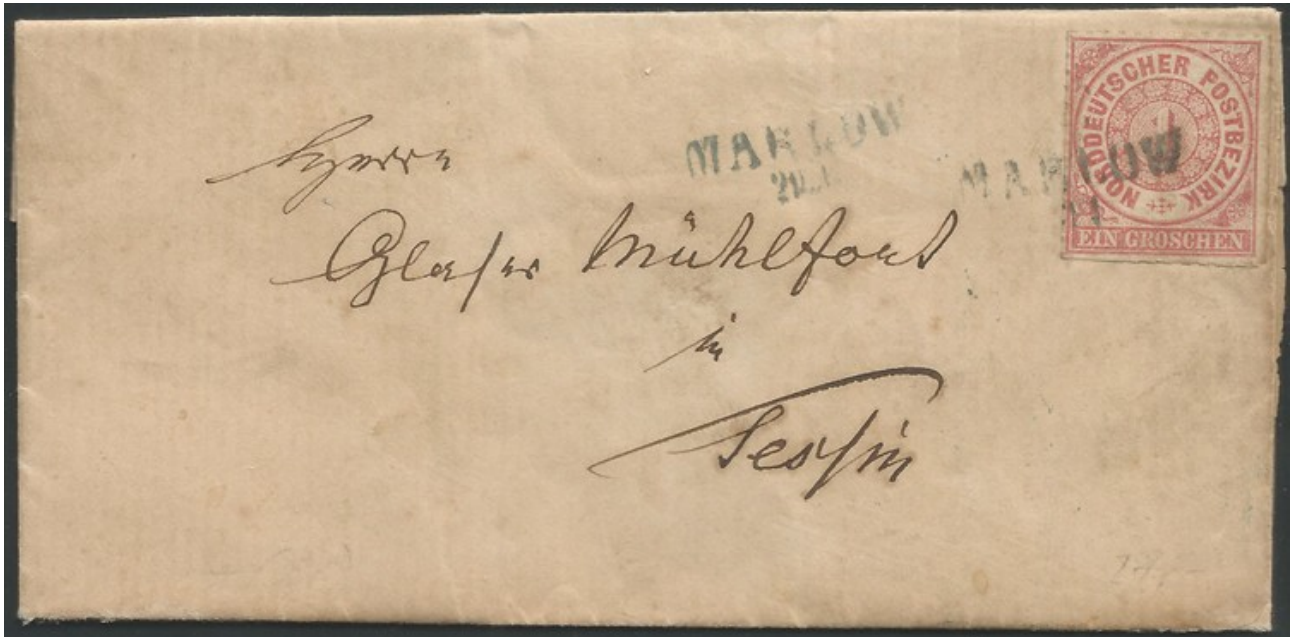 NORDDEUTSCHER POSTBEZIRK
1
EIN GROSCHEN
MARLOW
MARLOW
Herrn
Glaser Mühlfort
in
Tessin